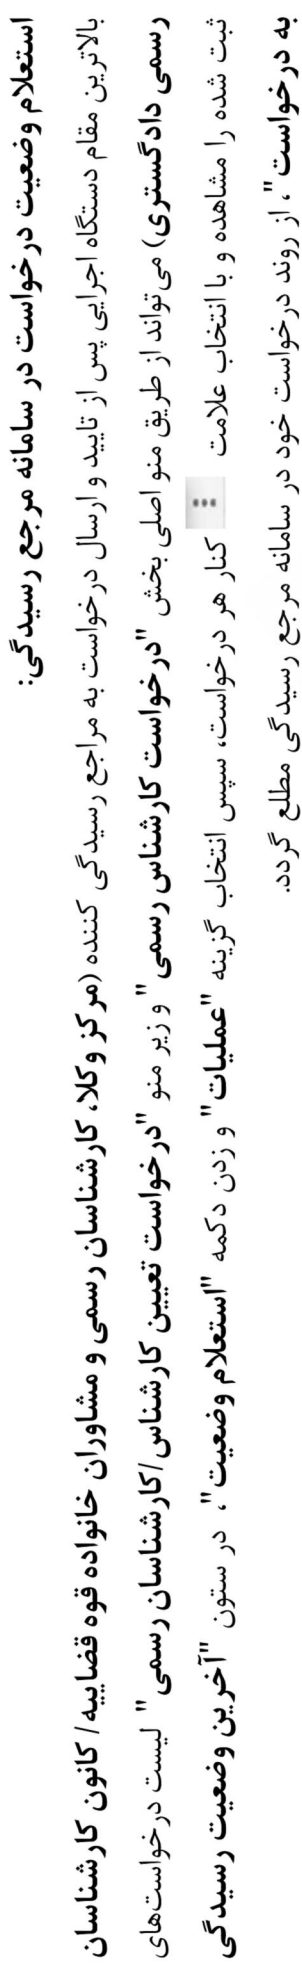 استعلام وضعیت درخواست در سامانه مرجع رسیدگی:
بالاترین مقام دستگاه اجرایی پس از تایید و ارسال درخواست به مراجع رسیدگی کننده (مرکز وکلا، کارشناسان رسمی و مشاوران خانواده قوه قضاییه/ کانون کارشناسان
رسمی دادگستری) می تواند از طریق منو اصلی بخش "درخواست کارشناس رسمی" و زیر منو "درخواست تعیین کارشناس/کارشناسان رسمی" لیست درخواست‌های
ثبت شده را مشاهده و با انتخاب علامت ⋮ کنار هر درخواست، سپس انتخاب گزینه "عملیات" و زدن دکمه "استعلام وضعیت"، در ستون "آخرین وضعیت رسیدگی
به درخواست"، از روند درخواست خود در سامانه مرجع رسیدگی مطلع گردد.